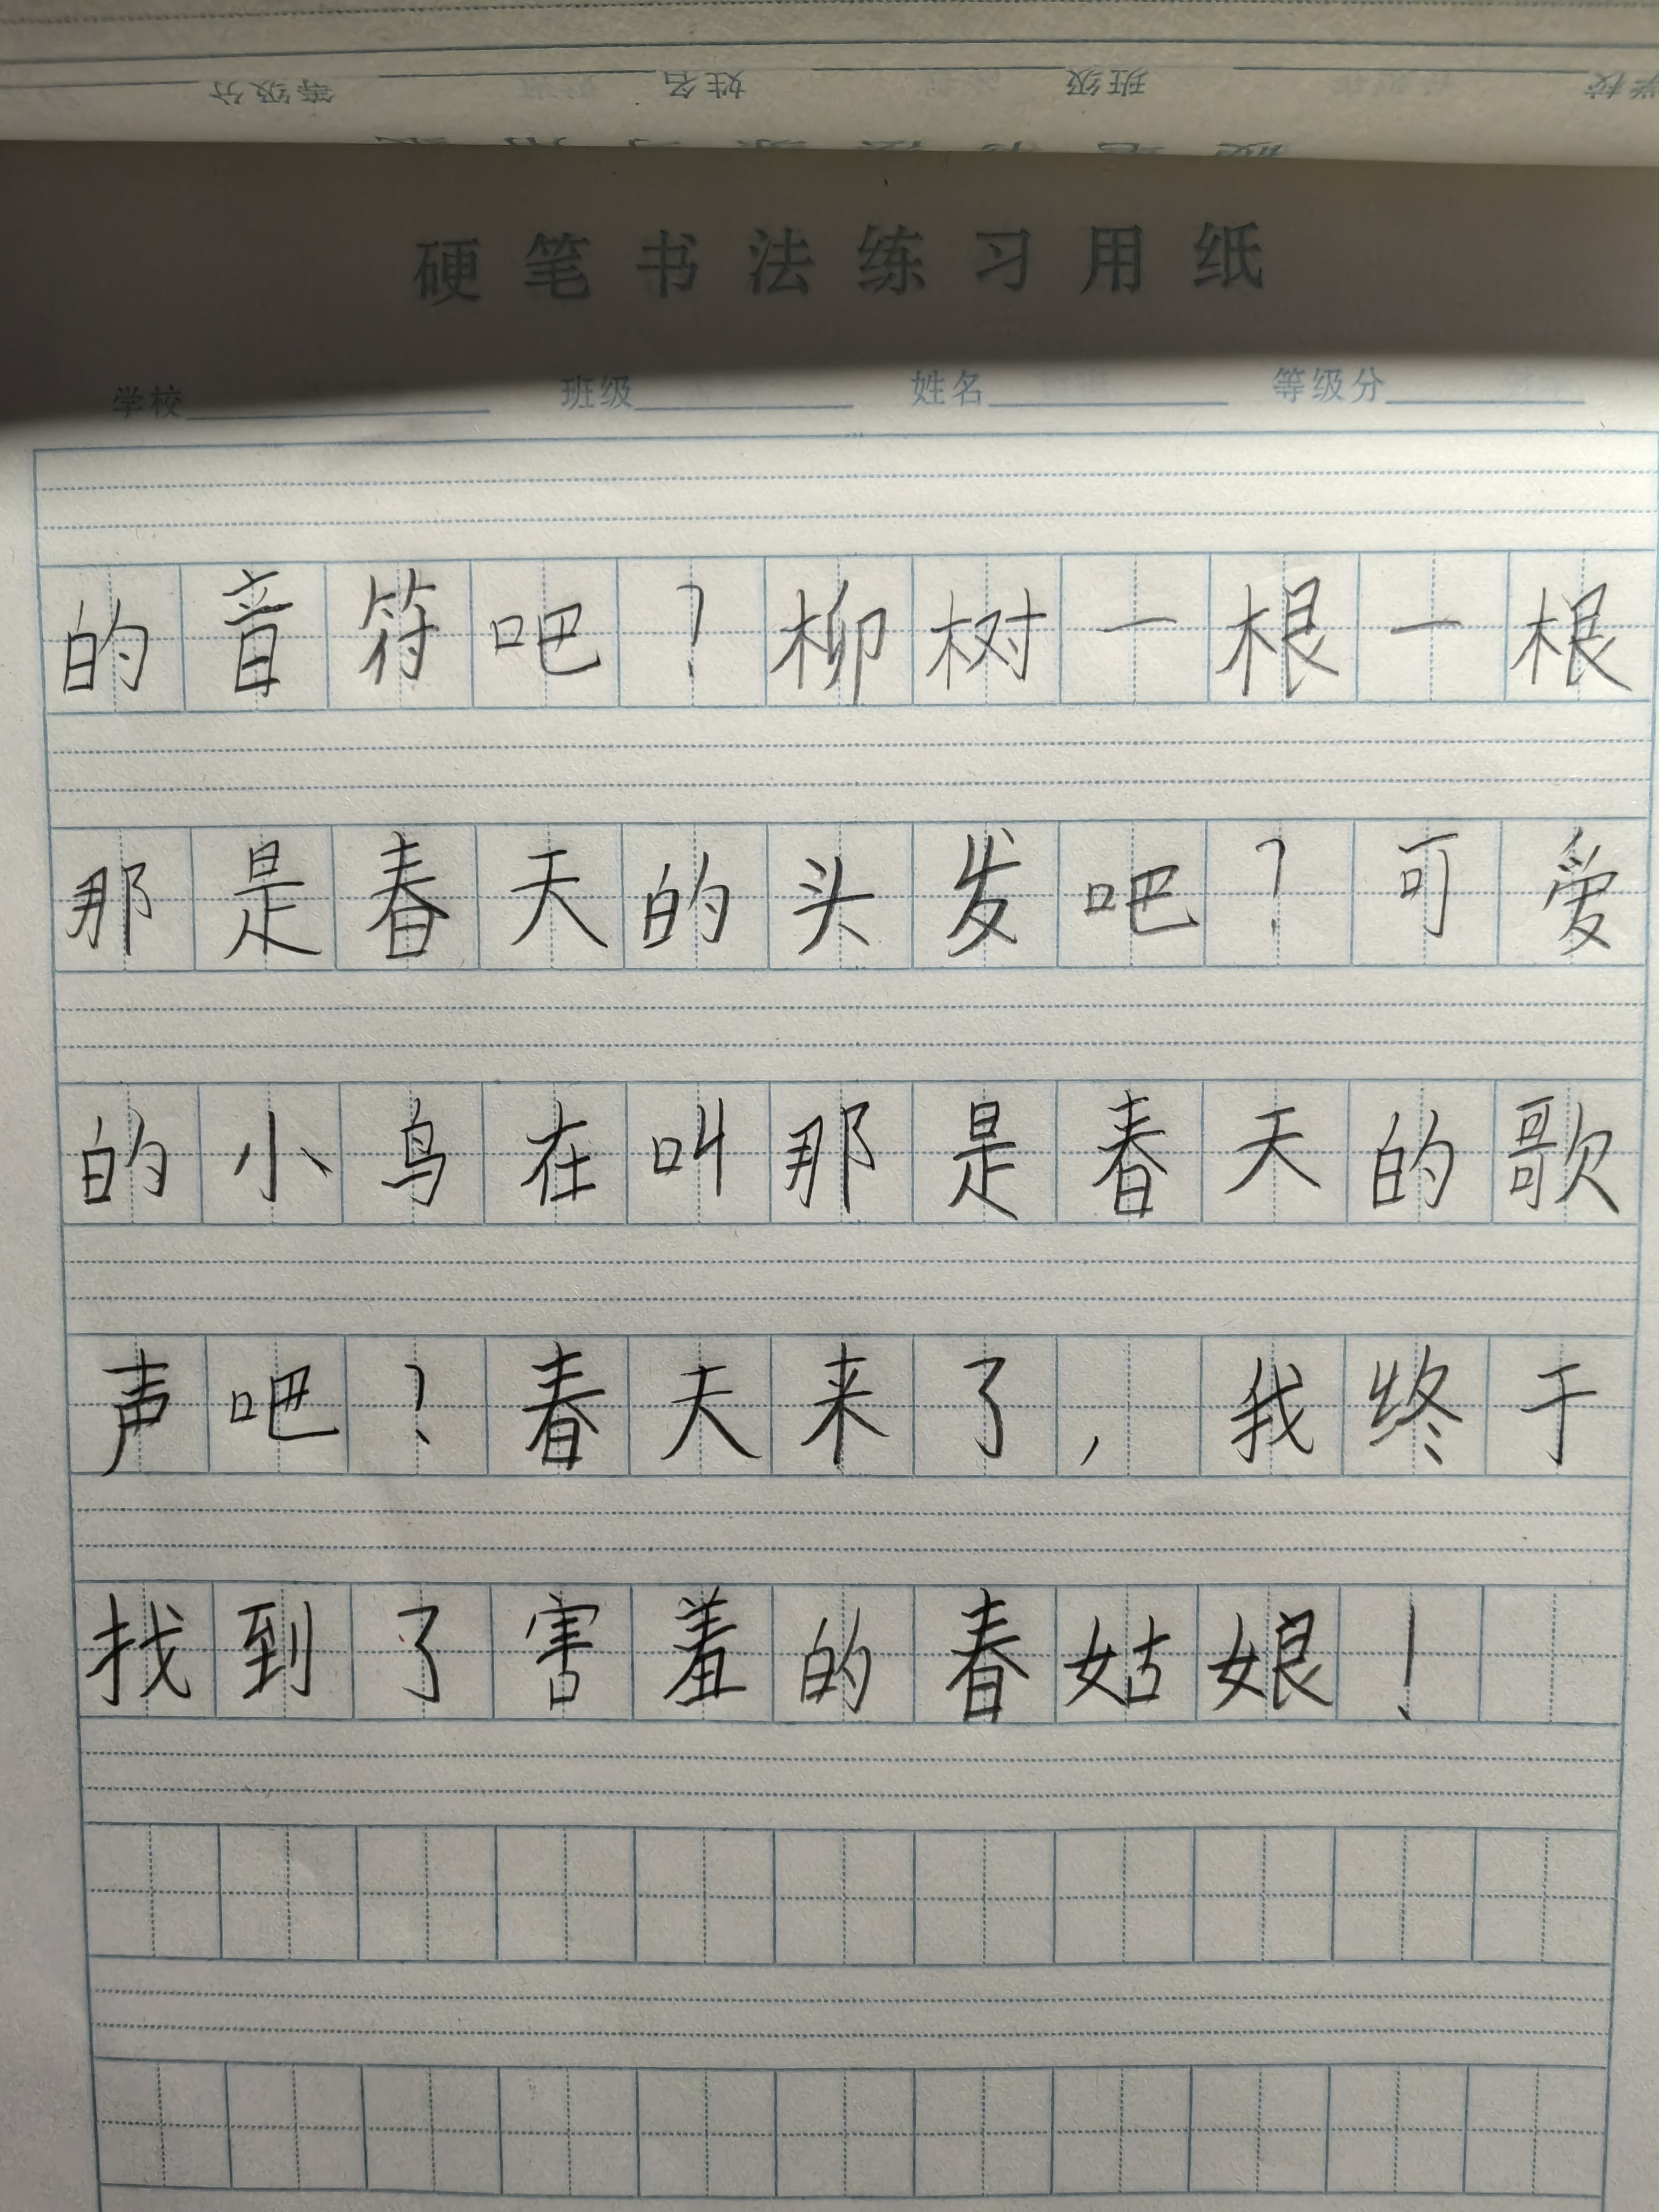 学校 班级 姓名 等级分
硬笔书法练习用纸
学校 班级 姓名 等级分
的音符吧？柳树一根一根
那是春天的头发吧？可爱
的小鸟在叫那是春天的歌
声吧？春天来了，我终于
找到了害羞的春姑娘！